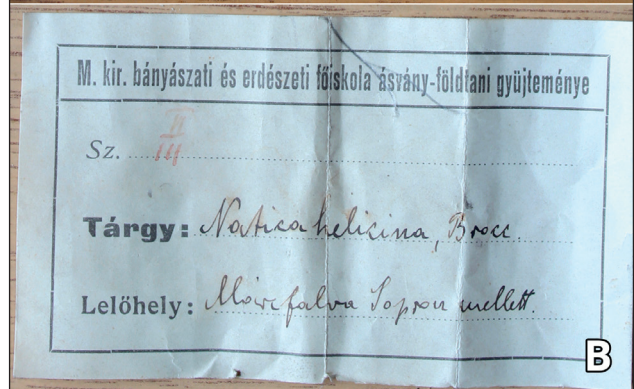 M. kir. bányászati és erdészeti főiskola ásvány-földtani gyüjteménye
Sz. II
III
Tárgy: Natica helicina, Brocc.
Lelőhely: Márcfalva Sopron mellett.
B